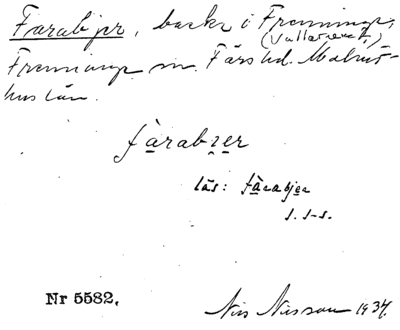 Farabjer, backe i Frenninge,
(Vallarena t.)
Frenninge sn. Färs hd. Malmö-
hus län.
fàrabįer
läs: fàrabjer
s. s-s.
Nr 5582.
Nils Nilsson 1934.